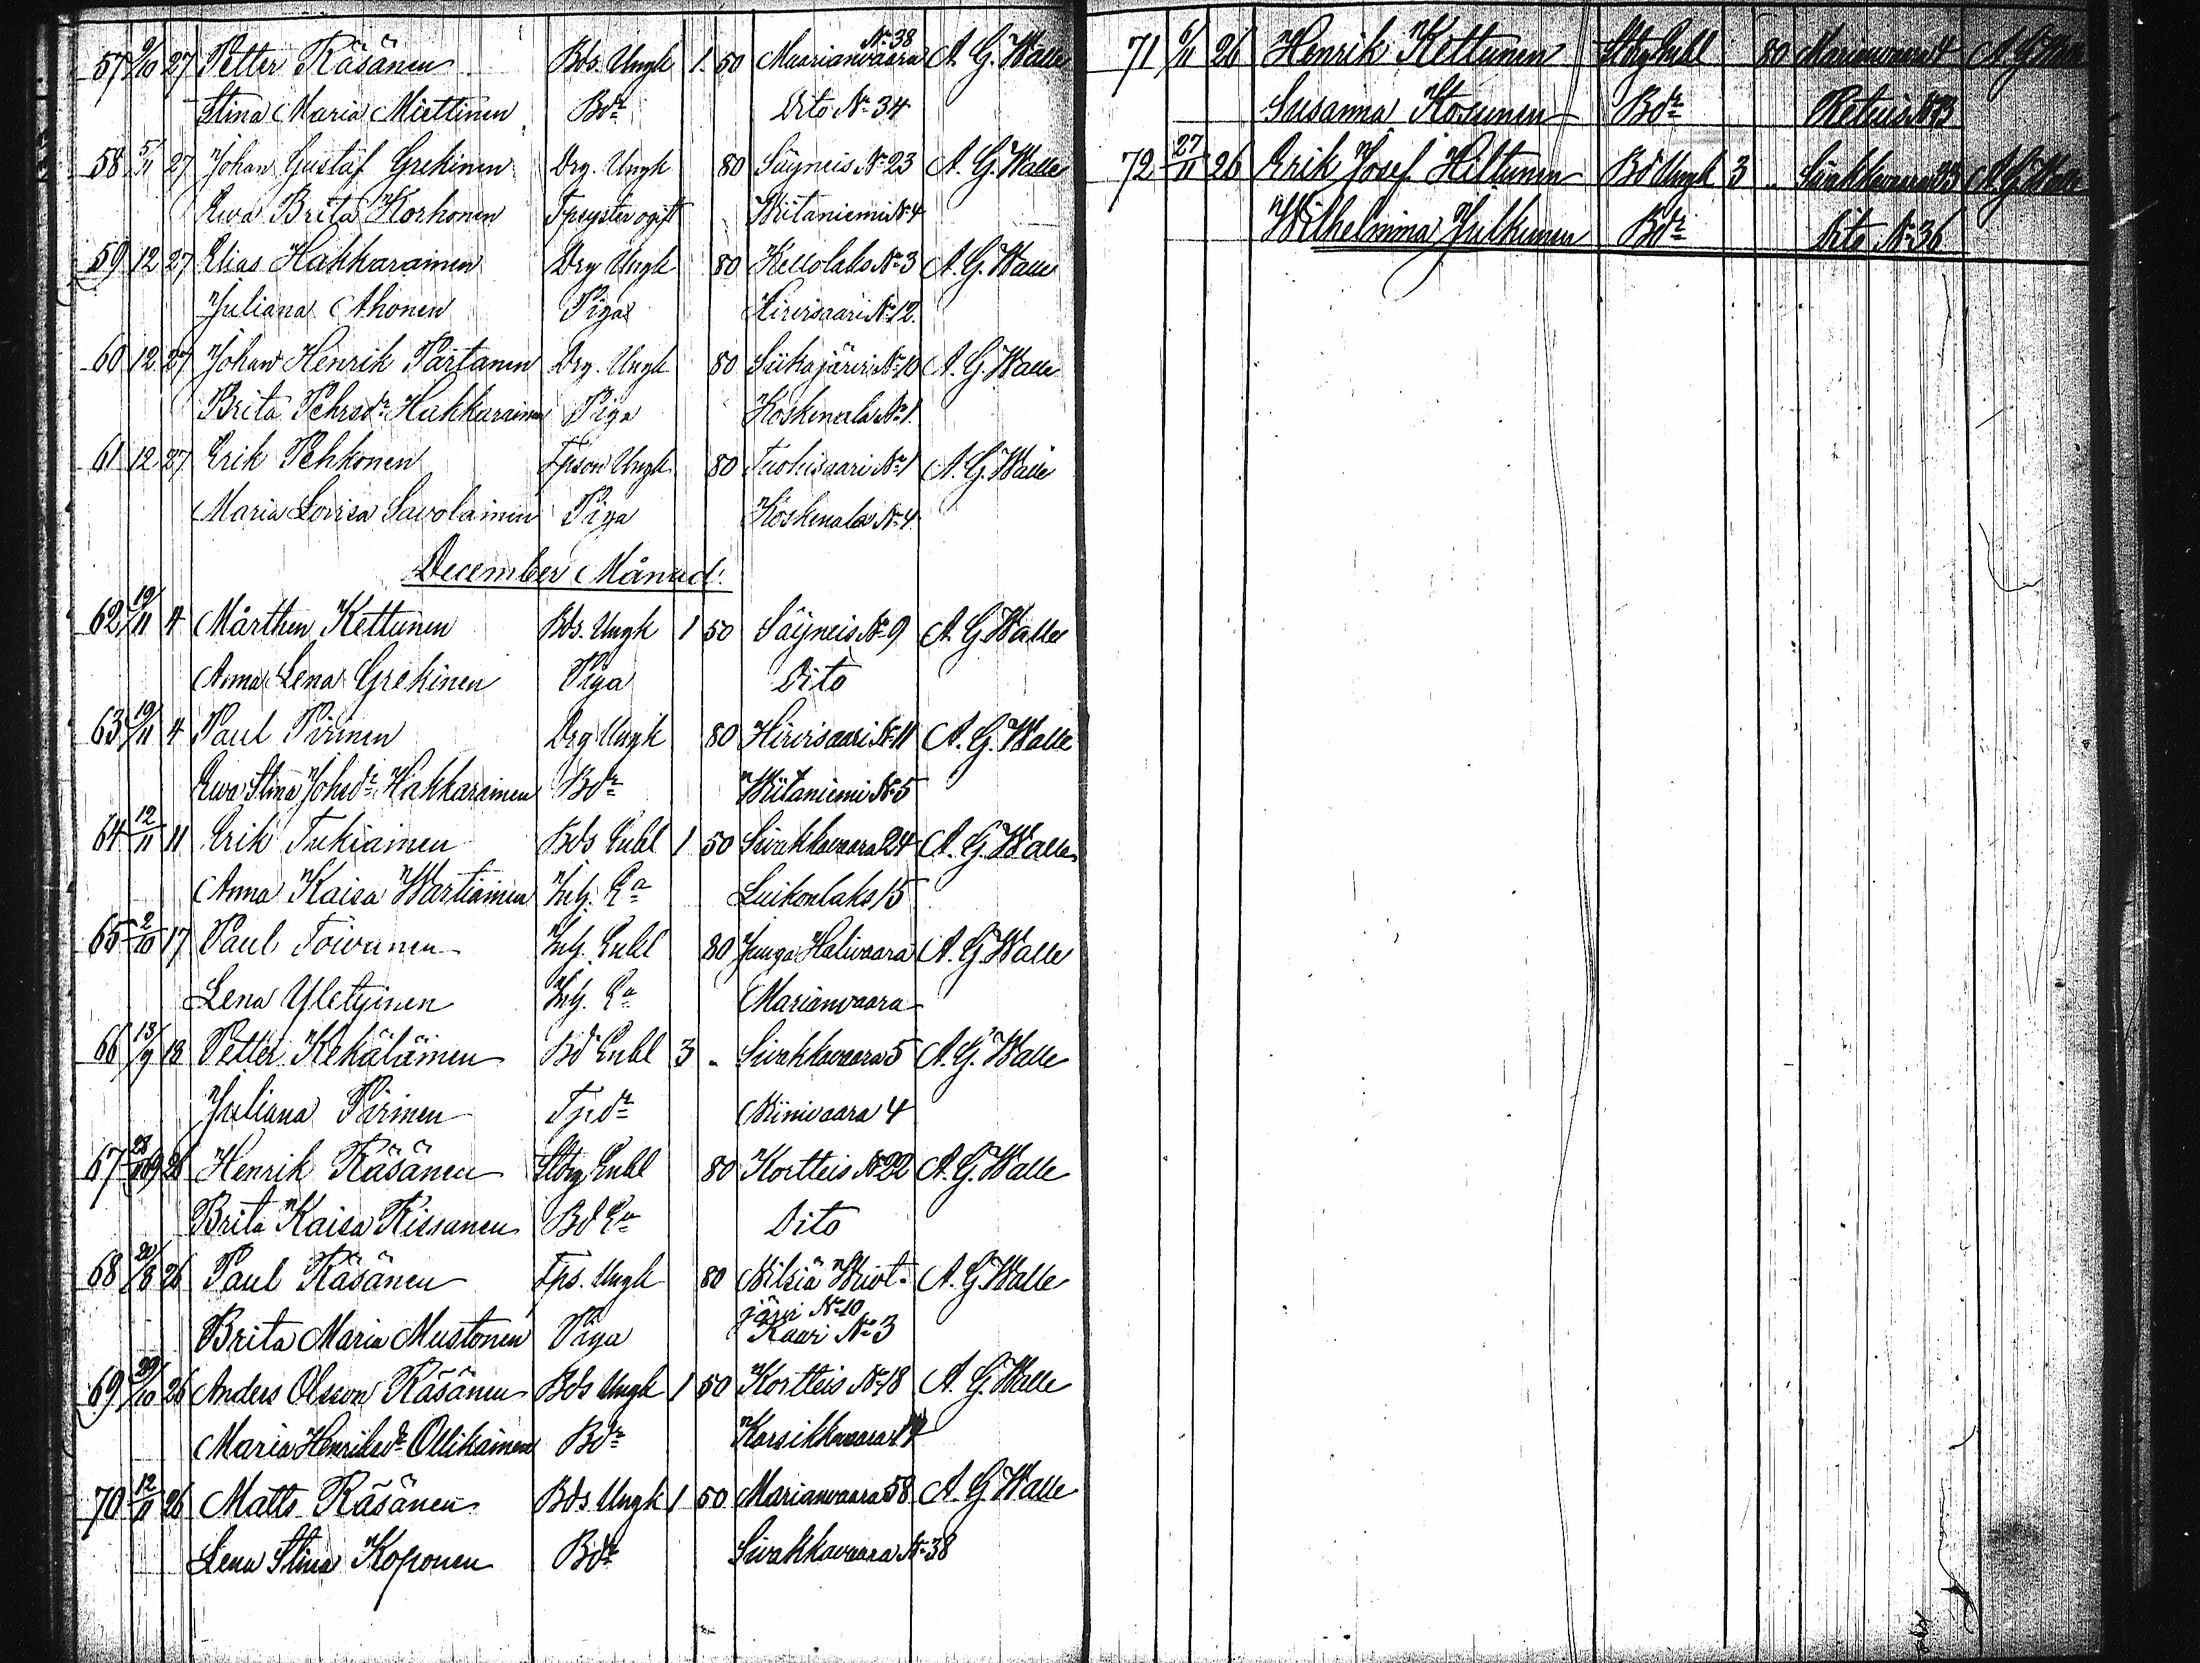 57 9/10 27 Petter Räsänen Bds. Ungk 1. 50 Maarianvaara No 38 A. G. Walle
Stina Maria Miettinen Bdr Dito No 34
58 5/11 27 Johan Gustaf Grekinen Drg. Ungk 80 Säyneis No 23 A. G. Walle
Ewa Brita Korhonen Tpsyster ogift Wiitaniemi No 4
59 12 27 Elias Hakkarainen Drg Ungk 80 Kellolaks No 3 A. G. Walle
Juliana Ahonen Piga Hirvisaari No 12.
60 12 27 Johan Henrik Partanen Drg. Ungk 80 Siikajärvi No 10 A. G. Walle
Brita Pehrsdr Hakkarainen Piga Koskenala No 1.
61 12 27 Erik Pehkonen Tpson Ungk 80 Tuohisaari No 1 A. G. Walle
Maria Lovisa Savolainen Piga Koskenala No 4.
December Månad.
62 19/11 4 Mårthen Kettunen Bds. Ungk 1 50 Säyneis No 9 A. G. Walle
Anna Lena Grekinen Piga Dito
63 19/11 4 Paul Pirinen Drg Ungk 80 Hirvisaari No 11 A. G. Walle
Ewa Stina Johsdr Hakkarainen Bdr Wiitaniemi No 5
64 12/11 11 Erik Tukiainen Bds Enkl 1 50 Sivakkavaara 24 A. G. Walle
Anna Kaisa Wartiainen Inh. Ea Luikonlaks 15
65 2/10 17 Paul Toivanen Inh. Enkl 80 Junga Halivaara A. G. Walle
Lena Yletyinen Inh. Ea Marianvaara
66 13/9 18 Petter Kekäläinen Bd Enkl 3 - Sivakkavaara 5 A. G. Walle
Juliana Pirinen Tpdr Niinivaara 4
67 26 Henrik Räsänen Stbg Enkl 80 Kortteis No 22 A. G. Walle
Brita Kaisa Kissanen Bd Ea Dito
68 26 Paul Räsänen Tps. Ungk 80 Nilsiä Wuot- A. G. Walle
järvi No 10
Brita Maria Mustonen Piga Kaavi No 3
69 29/10 26 Anders Olsson Räsänen Bds Ungk 1 50 Kortteis No 18 A. G. Walle
Maria Henriksdr Ollikainen Bdr Karsikkovaara
70 12/11 26 Matts Räsänen Bds Ungk 1 50 Marianvaara 58 A. G. Walle
Lena Stina Koponen Bdr Sivakkavaara No 38
71 6/11 26 Henrik Kettunen Stbg Enkl 80 Marianvaara 4 A. G. Walle
Susanna Kosunen Bdr Retuis No 3
72 27/11 26 Erik Josef Hiltunen Bd Ungk 3 - Sivakkavaara 23 A. G. Walle
Wilhelmina Julkunen Bdr Dito No 36